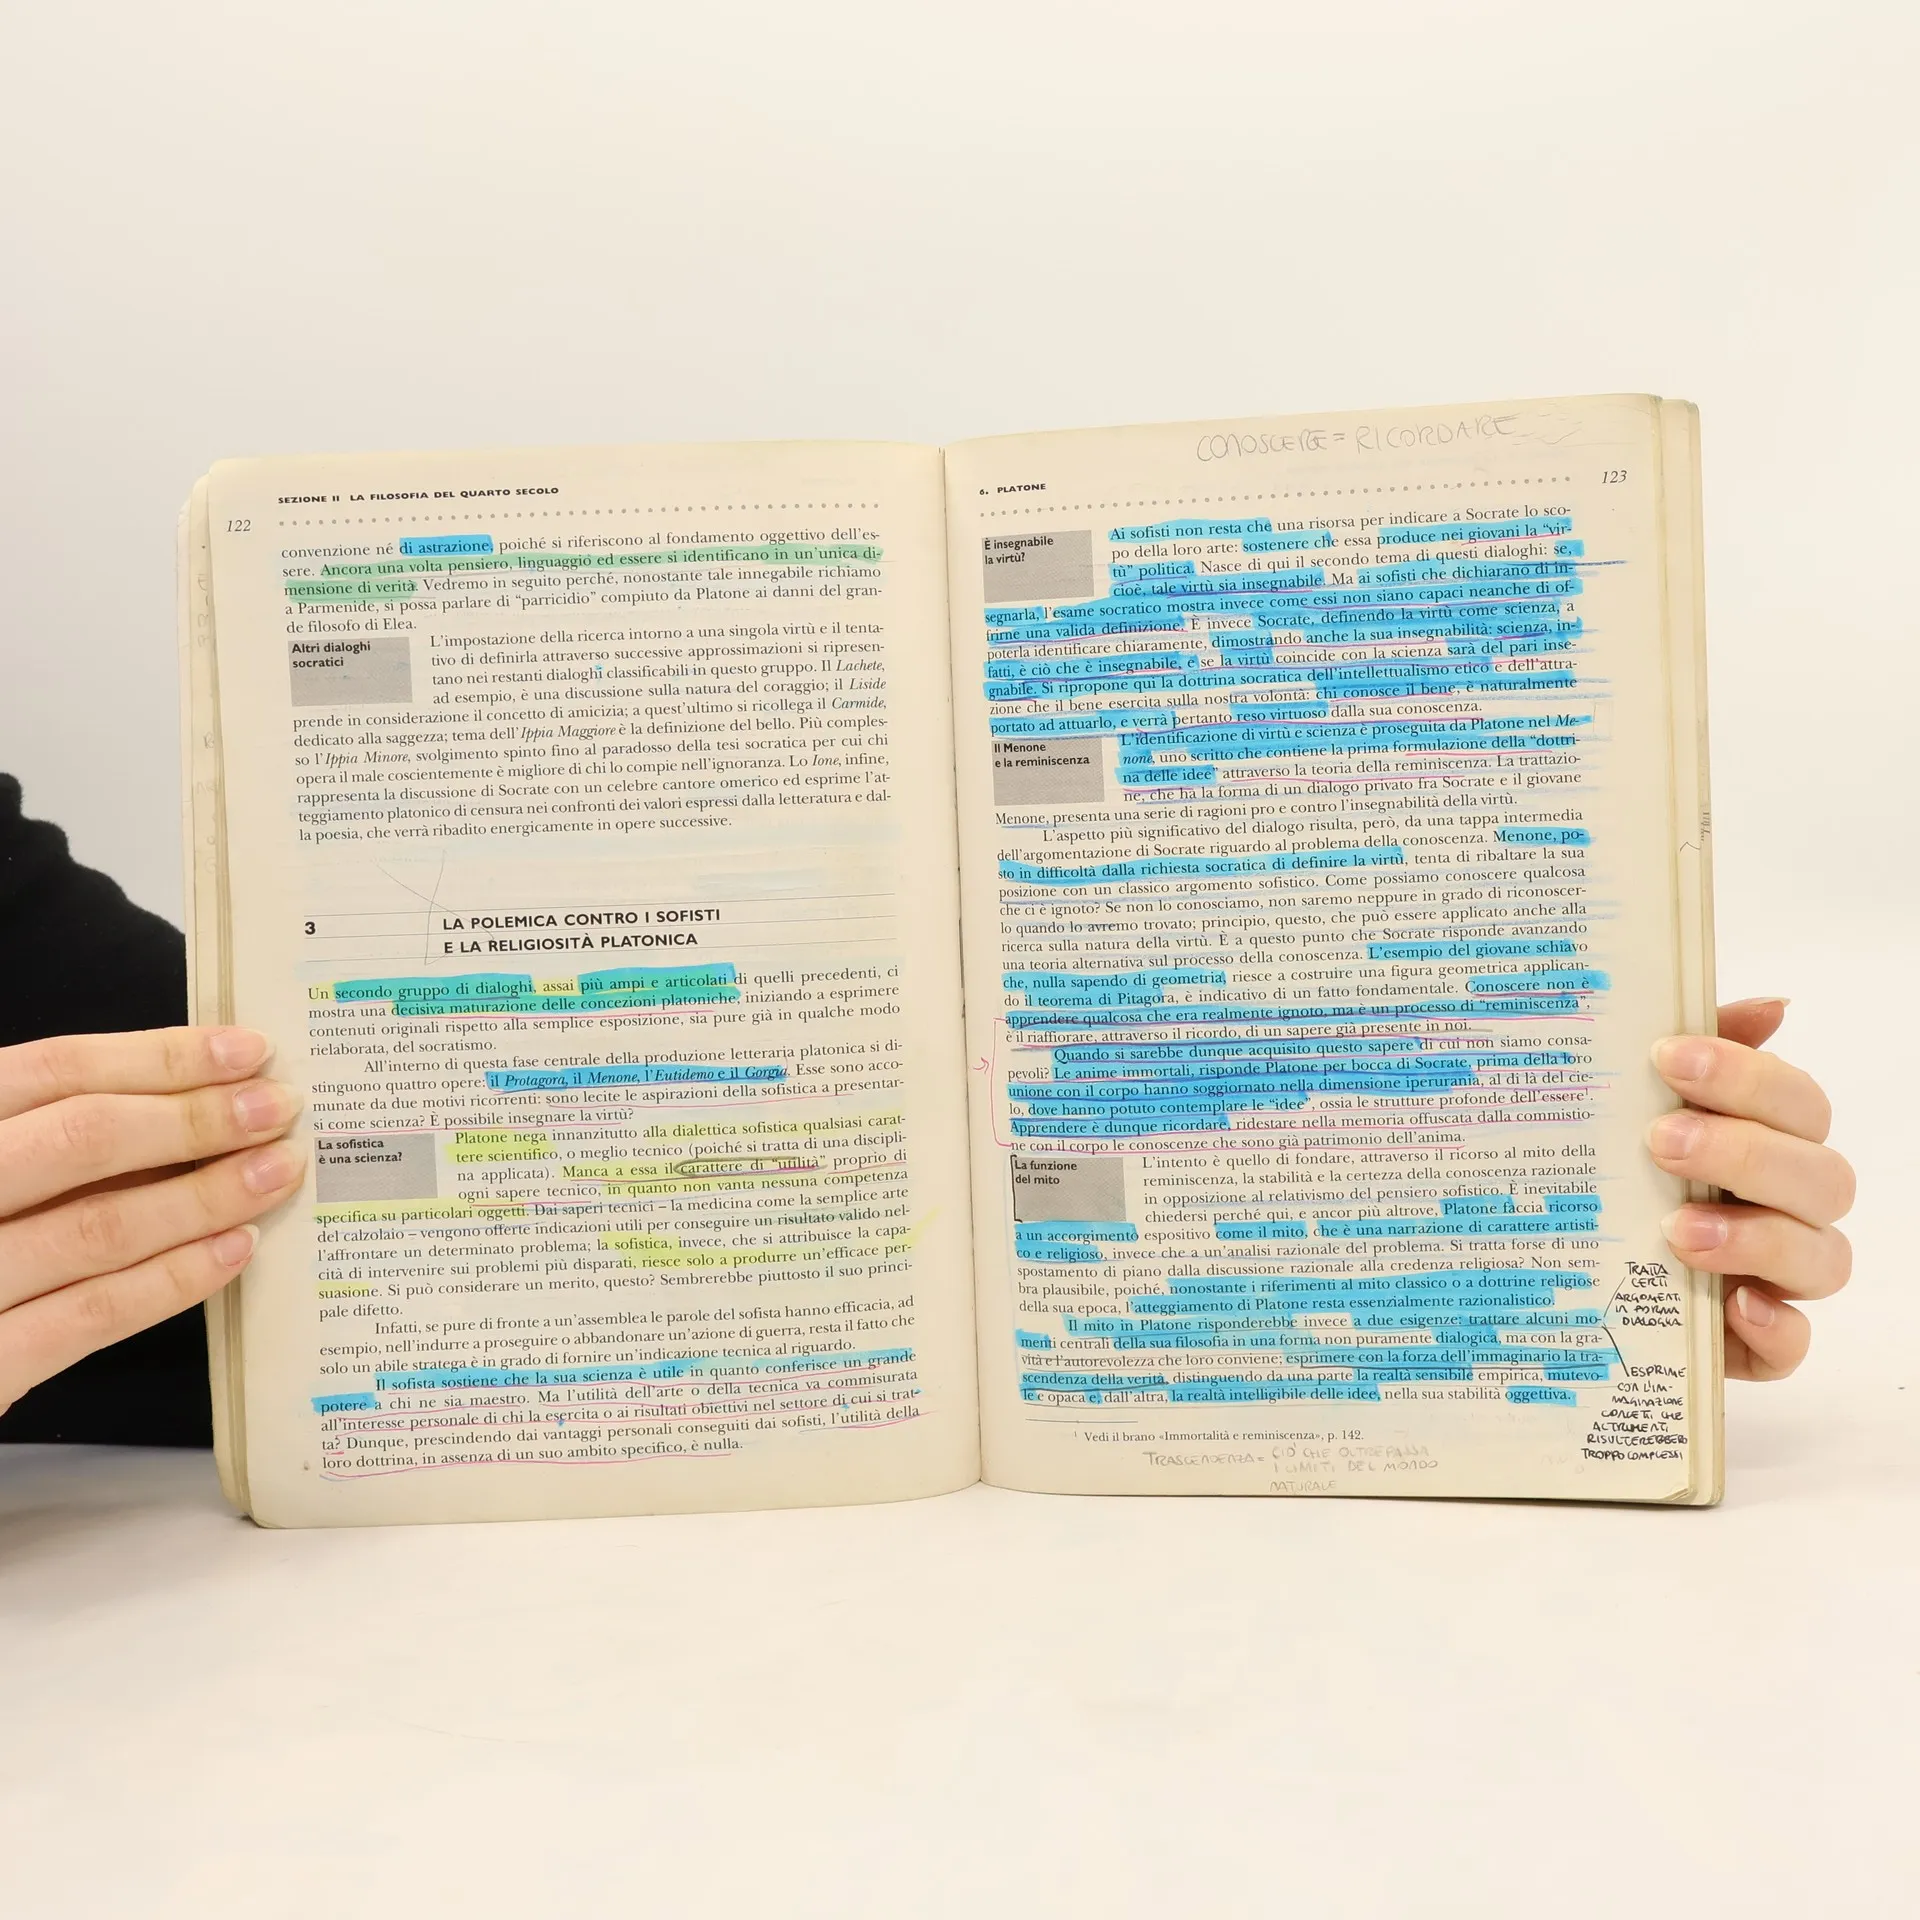 SEZIONE II LA FILOSOFIA DEL QUARTO SECOLO
122
convenzione né di astrazione, poiché si riferiscono al fondamento oggettivo dell'es-
sere. Ancora una volta pensiero, linguaggio ed essere si identificano in un'unica di-
mensione di verità. Vedremo in seguito perché, nonostante tale innegabile richiamo
a Parmenide, si possa parlare di "parricidio" compiuto da Platone ai danni del gran-
de filosofo di Elea.
Altri dialoghi
socratici
L'impostazione della ricerca intorno a una singola virtù e il tenta-
tivo di definirla attraverso successive approssimazioni si ripresen-
tano nei restanti dialoghi classificabili in questo gruppo. Il Lachete,
ad esempio, è una discussione sulla natura del coraggio; il Liside
prende in considerazione il concetto di amicizia; a quest'ultimo si ricollega il Carmide,
dedicato alla saggezza; tema dell'Ippia Maggiore è la definizione del bello. Più comples-
so l'Ippia Minore, svolgimento spinto fino al paradosso della tesi socratica per cui chi
opera il male coscientemente è migliore di chi lo compie nell'ignoranza. Lo Ione, infine,
rappresenta la discussione di Socrate con un celebre cantore omerico ed esprime l'at-
teggiamento platonico di censura nei confronti dei valori espressi dalla letteratura e dal-
la poesia, che verrà ribadito energicamente in opere successive.
3
LA POLEMICA CONTRO I SOFISTI
E LA RELIGIOSITÀ PLATONICA
Un secondo gruppo di dialoghi, assai più ampi e articolati di quelli precedenti, ci
mostra una decisiva maturazione delle concezioni platoniche, iniziando a esprimere
contenuti originali rispetto alla semplice esposizione, sia pure già in qualche modo
rielaborata, del socratismo.
All'interno di questa fase centrale della produzione letteraria platonica si di-
stinguono quattro opere: il Protagora, il Menone, l'Eutidemo e il Gorgia. Esse sono acco-
munate da due motivi ricorrenti: sono lecite le aspirazioni della sofistica a presentar-
si come scienza? È possibile insegnare la virtù?
La sofistica
è una scienza?
Platone nega innanzitutto alla dialettica sofistica qualsiasi carat-
tere scientifico, o meglio tecnico (poiché si tratta di una discipli-
na applicata). Manca a essa il carattere di "utilità" proprio di
ogni sapere tecnico, in quanto non vanta nessuna competenza
specifica su particolari oggetti. Dai saperi tecnici – la medicina come la semplice arte
del calzolaio – vengono offerte indicazioni utili per conseguire un risultato valido nel-
l'affrontare un determinato problema; la sofistica, invece, che si attribuisce la capa-
cità di intervenire sui problemi più disparati, riesce solo a produrre un'efficace per-
suasione. Si può considerare un merito, questo? Sembrerebbe piuttosto il suo princi-
pale difetto.
Infatti, se pure di fronte a un'assemblea le parole del sofista hanno efficacia, ad
esempio, nell'indurre a proseguire o abbandonare un'azione di guerra, resta il fatto che
solo un abile stratega è in grado di fornire un'indicazione tecnica al riguardo.
Il sofista sostiene che la sua scienza è utile in quanto conferisce un grande
potere a chi ne sia maestro. Ma l'utilità dell'arte o della tecnica va commisurata
all'interesse personale di chi la esercita o ai risultati obiettivi nel settore di cui si trat-
ta? Dunque, prescindendo dai vantaggi personali conseguiti dai sofisti, l'utilità della
loro dottrina, in assenza di un suo ambito specifico, è nulla.
CONOSCERE = RICORDARE
6. PLATONE
123
È insegnabile
la virtù?
Ai sofisti non resta che una risorsa per indicare a Socrate lo sco-
po della loro arte: sostenere che essa produce nei giovani la "vir-
tù" politica. Nasce di qui il secondo tema di questi dialoghi: se,
cioè, tale virtù sia insegnabile. Ma ai sofisti che dichiarano di in-
segnarla, l'esame socratico mostra invece come essi non siano capaci neanche di of-
frirne una valida definizione. È invece Socrate, definendo la virtù come scienza, a
poterla identificare chiaramente, dimostrando anche la sua insegnabilità: scienza, in-
fatti, è ciò che è insegnabile, e se la virtù coincide con la scienza sarà del pari inse-
gnabile. Si ripropone qui la dottrina socratica dell'intellettualismo etico e dell'attra-
zione che il bene esercita sulla nostra volontà: chi conosce il bene, è naturalmente
portato ad attuarlo, e verrà pertanto reso virtuoso dalla sua conoscenza.
Il Menone
e la reminiscenza
L'identificazione di virtù e scienza è proseguita da Platone nel Me-
none, uno scritto che contiene la prima formulazione della "dottri-
na delle idee" attraverso la teoria della reminiscenza. La trattazio-
ne, che ha la forma di un dialogo privato fra Socrate e il giovane
Menone, presenta una serie di ragioni pro e contro l'insegnabilità della virtù.
L'aspetto più significativo del dialogo risulta, però, da una tappa intermedia
dell'argomentazione di Socrate riguardo al problema della conoscenza. Menone, po-
sto in difficoltà dalla richiesta socratica di definire la virtù, tenta di ribaltare la sua
posizione con un classico argomento sofistico. Come possiamo conoscere qualcosa
che ci è ignoto? Se non lo conosciamo, non saremo neppure in grado di riconoscer-
lo quando lo avremo trovato; principio, questo, che può essere applicato anche alla
ricerca sulla natura della virtù. È a questo punto che Socrate risponde avanzando
una teoria alternativa sul processo della conoscenza. L'esempio del giovane schiavo
che, nulla sapendo di geometria, riesce a costruire una figura geometrica applican-
do il teorema di Pitagora, è indicativo di un fatto fondamentale. Conoscere non è
apprendere qualcosa che era realmente ignoto, ma è un processo di "reminiscenza",
è il riaffiorare, attraverso il ricordo, di un sapere già presente in noi.
Quando si sarebbe dunque acquisito questo sapere di cui non siamo consa-
pevoli? Le anime immortali, risponde Platone per bocca di Socrate, prima della loro
unione con il corpo hanno soggiornato nella dimensione iperurania, al di là del cie-
lo, dove hanno potuto contemplare le "idee", ossia le strutture profonde dell'essere¹.
Apprendere è dunque ricordare, ridestare nella memoria offuscata dalla commistio-
ne con il corpo le conoscenze che sono già patrimonio dell'anima.
La funzione
del mito
L'intento è quello di fondare, attraverso il ricorso al mito della
reminiscenza, la stabilità e la certezza della conoscenza razionale
in opposizione al relativismo del pensiero sofistico. È inevitabile
chiedersi perché qui, e ancor più altrove, Platone faccia ricorso
a un accorgimento espositivo come il mito, che è una narrazione di carattere artisti-
co e religioso, invece che a un'analisi razionale del problema. Si tratta forse di uno
spostamento di piano dalla discussione razionale alla credenza religiosa? Non sem-
bra plausibile, poiché, nonostante i riferimenti al mito classico o a dottrine religiose
della sua epoca, l'atteggiamento di Platone resta essenzialmente razionalistico.
Il mito in Platone risponderebbe invece a due esigenze: trattare alcuni mo-
menti centrali della sua filosofia in una forma non puramente dialogica, ma con la gra-
vità e l'autorevolezza che loro conviene; esprimere con la forza dell'immaginario la tra-
scendenza della verità, distinguendo da una parte la realtà sensibile empirica, mutevo-
le e opaca e, dall'altra, la realtà intelligibile delle idee, nella sua stabilità oggettiva.
TRATTA
CERTI
ARGOMENTI
IN FORMA
DIALOGICA
ESPRIME
CON L'IM-
MAGINAZIONE
CONCETTI CHE
ALTRIMENTI
RISULTEREBBERO
TROPPO COMPLESSI
¹ Vedi il brano «Immortalità e reminiscenza», p. 142.
TRASCENDENZA = CIÒ CHE OLTREPASSA
I LIMITI DEL MONDO
NATURALE